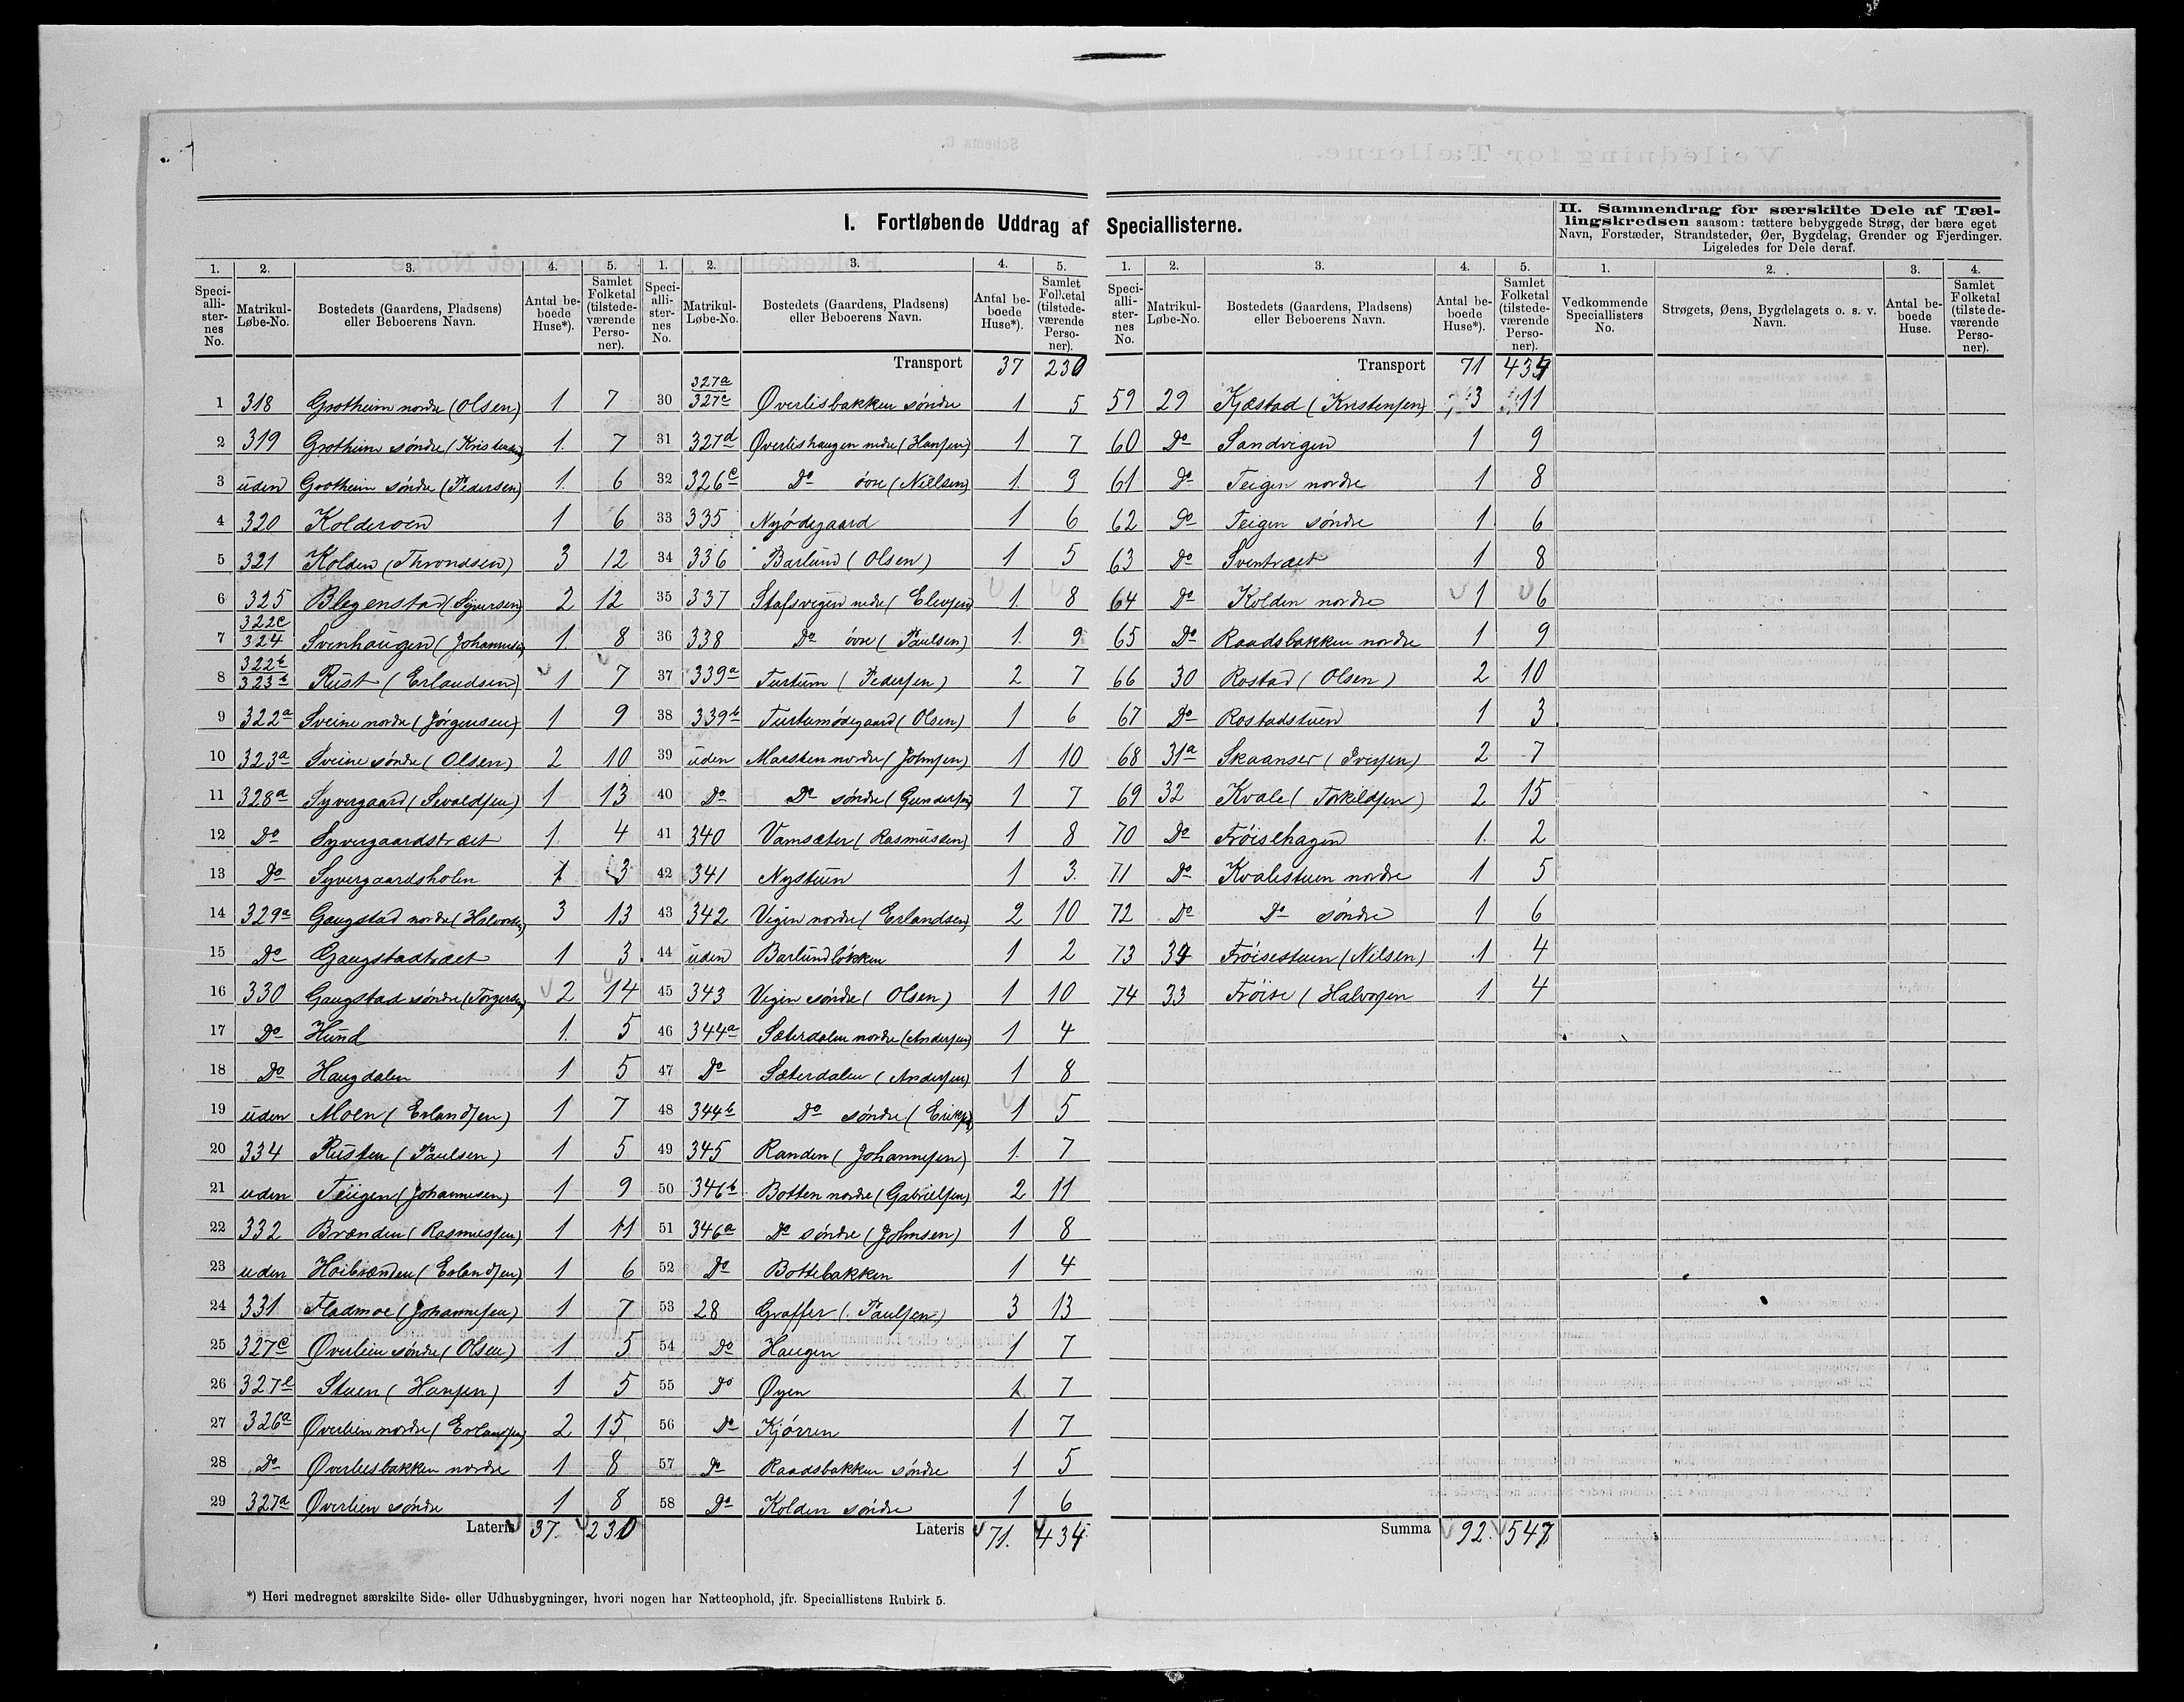 I. Fortløbende Uddrag af Speciallisterne.
1. 2. 3. 4. 5.
Specialli-sternes No. Matrikul-Løbe-No. Bostedets (Gaardens, Pladsens) eller Beboerens Navn. Antal beboede Huse*). Samlet Folketal (tilstedeværende Personer).
1 318 Grotheim nordre (Olsen) 1 7
2 319 Grotheim søndre (Kristensen) 1. 7
3 uden Grotheim søndre (Pedersen) 1. 6
4 320 Kolderoen 1 6
5 321 Kolden (Throndsen) 3 12
6 325 Blegenstad (Syversen) 2 12
7 322c/324 Svenhaugen (Johannesen) 1. 8
8 322b/323b Rust (Erlandsen) 1 7
9 322a Sveine nordre (Jørgensen) 1 9
10 323a Sveine søndre (Olsen) 2 10
11 328a Syvergaard (Sevaldsen) 1 13
12 Do Syvergaardstræet 1. 4
13 Do Syvergaardsholen 1 3
14 329a Gaugstad nordre (Halvorsen) 3 13
15 Do Gaugstadtræet 1 3.
16 330 Gaugstad søndre (Torgersen) 2 14
17 Do Hund 1. 5
18 Do Haugdalen 1 5
19 uden Moen (Erlandsen) 1 7
20 334 Rusten (Paulsen) 1 5
21 uden Teigen (Johannesen) 1 9
22 332 Brænden (Rasmussen) 1 11
23 uden Høibrænden (Erlandsen) 1 6
24 331 Fladmoe (Johannesen) 1 7
25 327c Øverlien søndre (Olsen) 1 5
26 327e Stuen (Hansen) 1 5
27 326a Øverlien nordre (Erlandsen) 2 15.
28 Do Øverliesbakken nordre 1 8
29 327a Øverlien søndre 1 8
Lateris 37. 230
1. 2. 3. 4. 5.
Specialli-sternes No. Matrikul-Løbe-No. Bostedets (Gaardens, Pladsens) eller Beboerens Navn. Antal beboede Huse*). Samlet Folketal (tilstedeværende Personer).
Transport 37 230
30 327a/327c Øverlisbakken søndre 1 5
31 327d Øverlishaugen nedre (Hansen) 1 7
32 326c Do övre (Nielsen) 1. 9
33 335 Nyødegaard 1 6
34 336 Barlund (Olsen) 1 5
35 337 Stafsvigen nedre (Elevsen) 1. 8
36 338 Do övre (Paulsen) 1. 9
37 339a Turtum (Pedersen) 2 7
38 339b Turtumødegaard (Olsen) 1 6
39 uden Marsten nordre (Johnsen) 1 10
40 Do Do søndre (Gundersen) 1 7
41 340 Vamsæter (Rasmussen) 1 8
42 341 Nystuen 1 3.
43 342 Vigen nordre (Erlandsen) 2 10
44 uden Barlundløkken 1 2
45 343 Vigen søndre (Olsen) 1 10
46 344a Sæterdalen nordre (Andersen) 1 4
47 Do Sæterdalen (Andersen) 1 8
48 344b Do søndre (Eriksen) 1 5
49 345 Randen (Johannesen) 1. 7
50 346b Botten nordre (Gabrielsen) 2 11
51 346a Do søndre (Johnsen) 1 8
52 Do Bottebakken 1 4
53 28 Graffer (Paulsen) 3 13
54 Do Haugen 1 7
55 Do Øyen 1 7
56 Do Kjørren 1 7
57 Do Raadsbakken søndre 1 5
58 Do Kolden søndre 1 6
Lateris 71. 434
1. 2. 3. 4. 5.
Specialli-sternes No. Matrikul-Løbe-No. Bostedets (Gaardens, Pladsens) eller Beboerens Navn. Antal beboede Huse*). Samlet Folketal (tilstedeværende Personer).
Transport 71 434
59 29 Kjæstad (Kristensen) 3 11
60 Do Sandvigen 1 9
61 Do Teigen nordre 1 8
62 Do Teigen søndre 1 6
63 Do Sventræet 1 8
64 Do Kolden nordre 1 6
65 Do Raadsbakken nordre 1 9
66 30 Rostad (Olsen) 2 10
67 Do Rostadstuen 1 3.
68 31a Skaanser (Iversen) 2 7
69 32 Kvale (Torkildsen) 2 15
70 Do Frøisehagen 1. 2
71 Do Kvalestuen nordre 1 5
72 Do Do søndre 1 6
73 34 Frøisestuen (Nilsen) 1 4
74 33 Frøise (Halvorsen 1 4
Summa 92. 547
II. Sammendrag for særskilte Dele af Tællingskredsen saasom: tættere bebyggede Strøg, der bære eget
Navn, Forstæder, Strandsteder, Øer, Bygdelag, Grender og Fjerdinger.
Ligeledes for Dele deraf.
1. 2. 3. 4.
Vedkommende Speciallisters No. Strøgets, Øens, Bygdelagets o. s. v. Navn. Antal beboede Huse. Samlet Folketal (tilstedeværende Personer).
*) Heri medregnet særskilte Side- eller Udhusbygninger, hvori nogen har Natteophold, jfr. Speciallistens Rubirk 5.